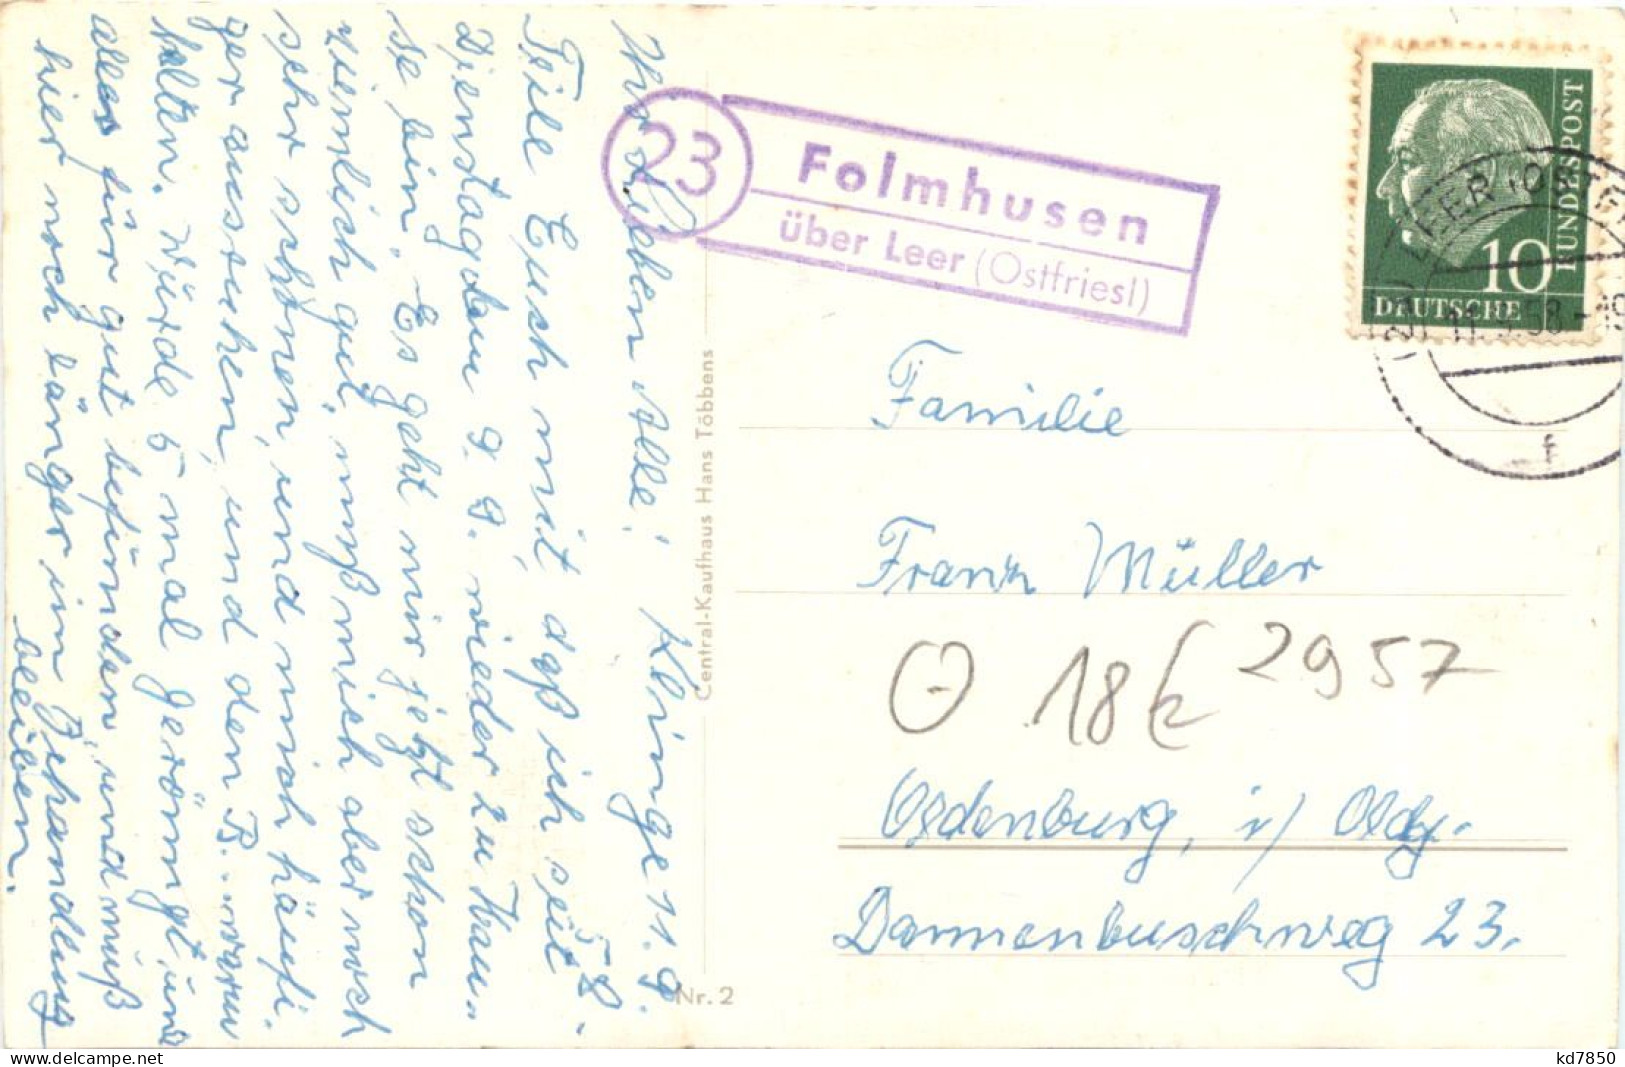 Ihr Lieben Alle! Klinge 11.9.
58.
Teile Euch mit, daß ich seit
Dienstag dem 9.9. wieder zu Hau-
se bin. Es geht mir jetzt schon
ziemlich gut, muß mich aber noch
sehr schonen, und mich häufi-
ger ausruhen, und den B... warm
halten. Würde 5 mal geröntgt, und
alles für gut befunden, und muß
hier noch länger in Behandlung
bleiben.
Central-Kaufhaus Hans Többens
Nr. 2
23
Folmhusen
über Leer (Ostfriesl)
DEUTSCHE
BUNDESPOST
10
LEER (OSTFR
58-19
f
Familie
Franz Müller
18 2957
Oldenburg, i/ Oldg.
Dannenbuschweg 23.
www.delcampe.net
kd7850